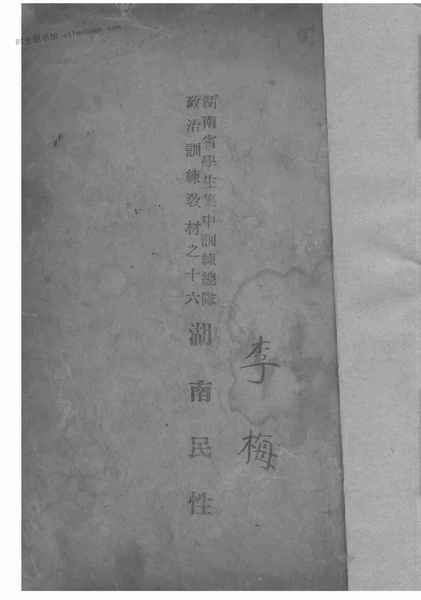 湖南省學生集中訓練總隊
政治訓練教材之十六
湖南民性
李梅